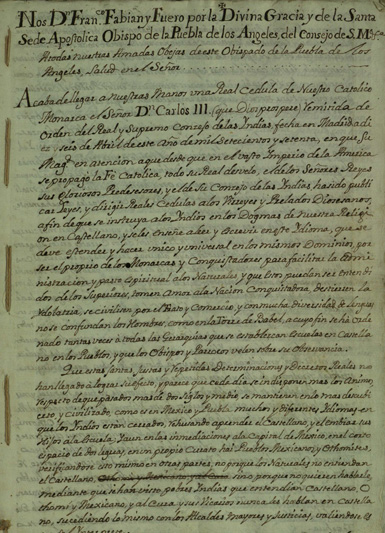 Nos Dn. Franco. Fabian y Fuero por la Divina Gracia y de la Santa
Sede Apostolica Obispo de la Puebla de los Angeles, del Consejo de S.M. &ca.
A todas nuestras Amadas Obejas de este Obispado de la Puebla de los
Angeles, Salud en el Señor.
Acaba de llegar a nuestras Manos una Real Cedula de Nuestro Catolico
Monarca el Señor Dn. Carlos III. (que Dios prospere) remitida de
Orden del Real y Supremo Consejo de las Indias, fecha en Madrid a di
ez y seis de Abril de este Año de mil setecientos y setenta, en que Su
Magd. en atencion a que desde que en el vasto Imperio de la America
se propagó la Fe Catolica, todo su Real desvelo, el de los Señores Reyes
sus Gloriosos Predesesores, y el de su Consejo de las Indias, ha sido publi
car Leyes, y dirigir Reales Cedulas a los Virreyes y Prelados Diocesanos,
a fin de que se instruya a los Indios en los Dogmas de nuestra Religi
on en Castellano, y se les enseñe a leer y escrivir en este Idioma, que se
deve estender y hacer unico y universal en los mismos Dominios, por
ser el proprio de los Monarcas y Conquistadores para facilitar la Admi
nistracion y pasto Espiritual a los Naturales y que estos puedan ser entendi
dos de los Superiores, tomen Amor a la Nacion Conquistadora, destierren la
Ydolatria, se civilisen por el trato y Comercio, y con mucha diversidad de Lenguas
no se confundan los Hombres, como en la Torre de Babel, a cuyo fin se ha orde
nado tantas veces a todas las Gerarquias que se establescan Escuelas en Castella
no en los Pueblos, y que los Obispos y Parrocos velen sobre su Observancia.
Que estas santas, Justas y repetidas Determinaciones y Decretos Reales no
han llegado a lograr su efecto, y parece que cada dia se indisponen mas los Animos,
respecto de que pasados mas de dos Siglos y medio se mantienen en lo mas descubi
erto y civilizado, como es en Mexico y Puebla, muchos y diferentes Idiomas, en
que los Indios estan cerrados, rehusando aprender el Castellano, y el embiar sus
Hijos a la Escuela, y aun en las inmediaciones a la Capital de Mexico, en el corto
espacio de dos leguas, en un proprio Curato hai Pueblos Mexicanos y Othomites,
verificandose esto mismo en otras partes, no porque los Naturales no entiendan
el Castellano, sino porque no quieren hablarle,
mediante que se han visto pobres Indios que entendian Castellano, O
thomi y Mexicano, y al Cura y sus Vicarios nunca les hablan en Castella
no, sucediendo lo mismo con los Alcaldes Mayores y Justicias, valiendose es